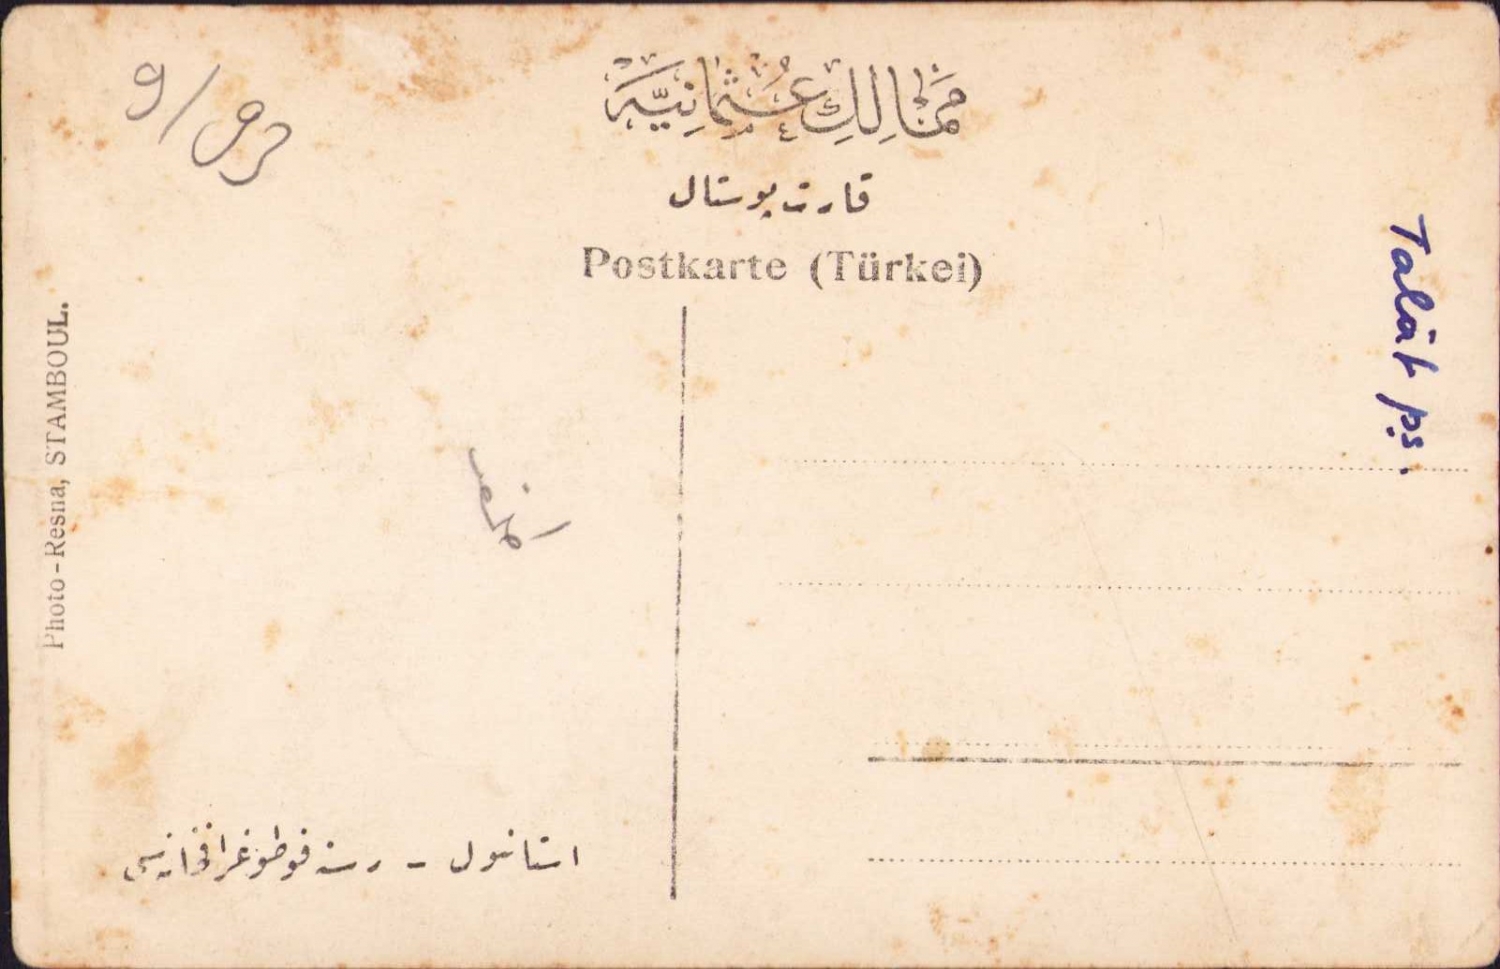 ممالك عثمانیه
قارت پوستال
Postkarte (Türkei)
Talât pş.
Photo-Resna, STAMBOUL.
استانبول - رسنه فوطوغرافخانه‌سی